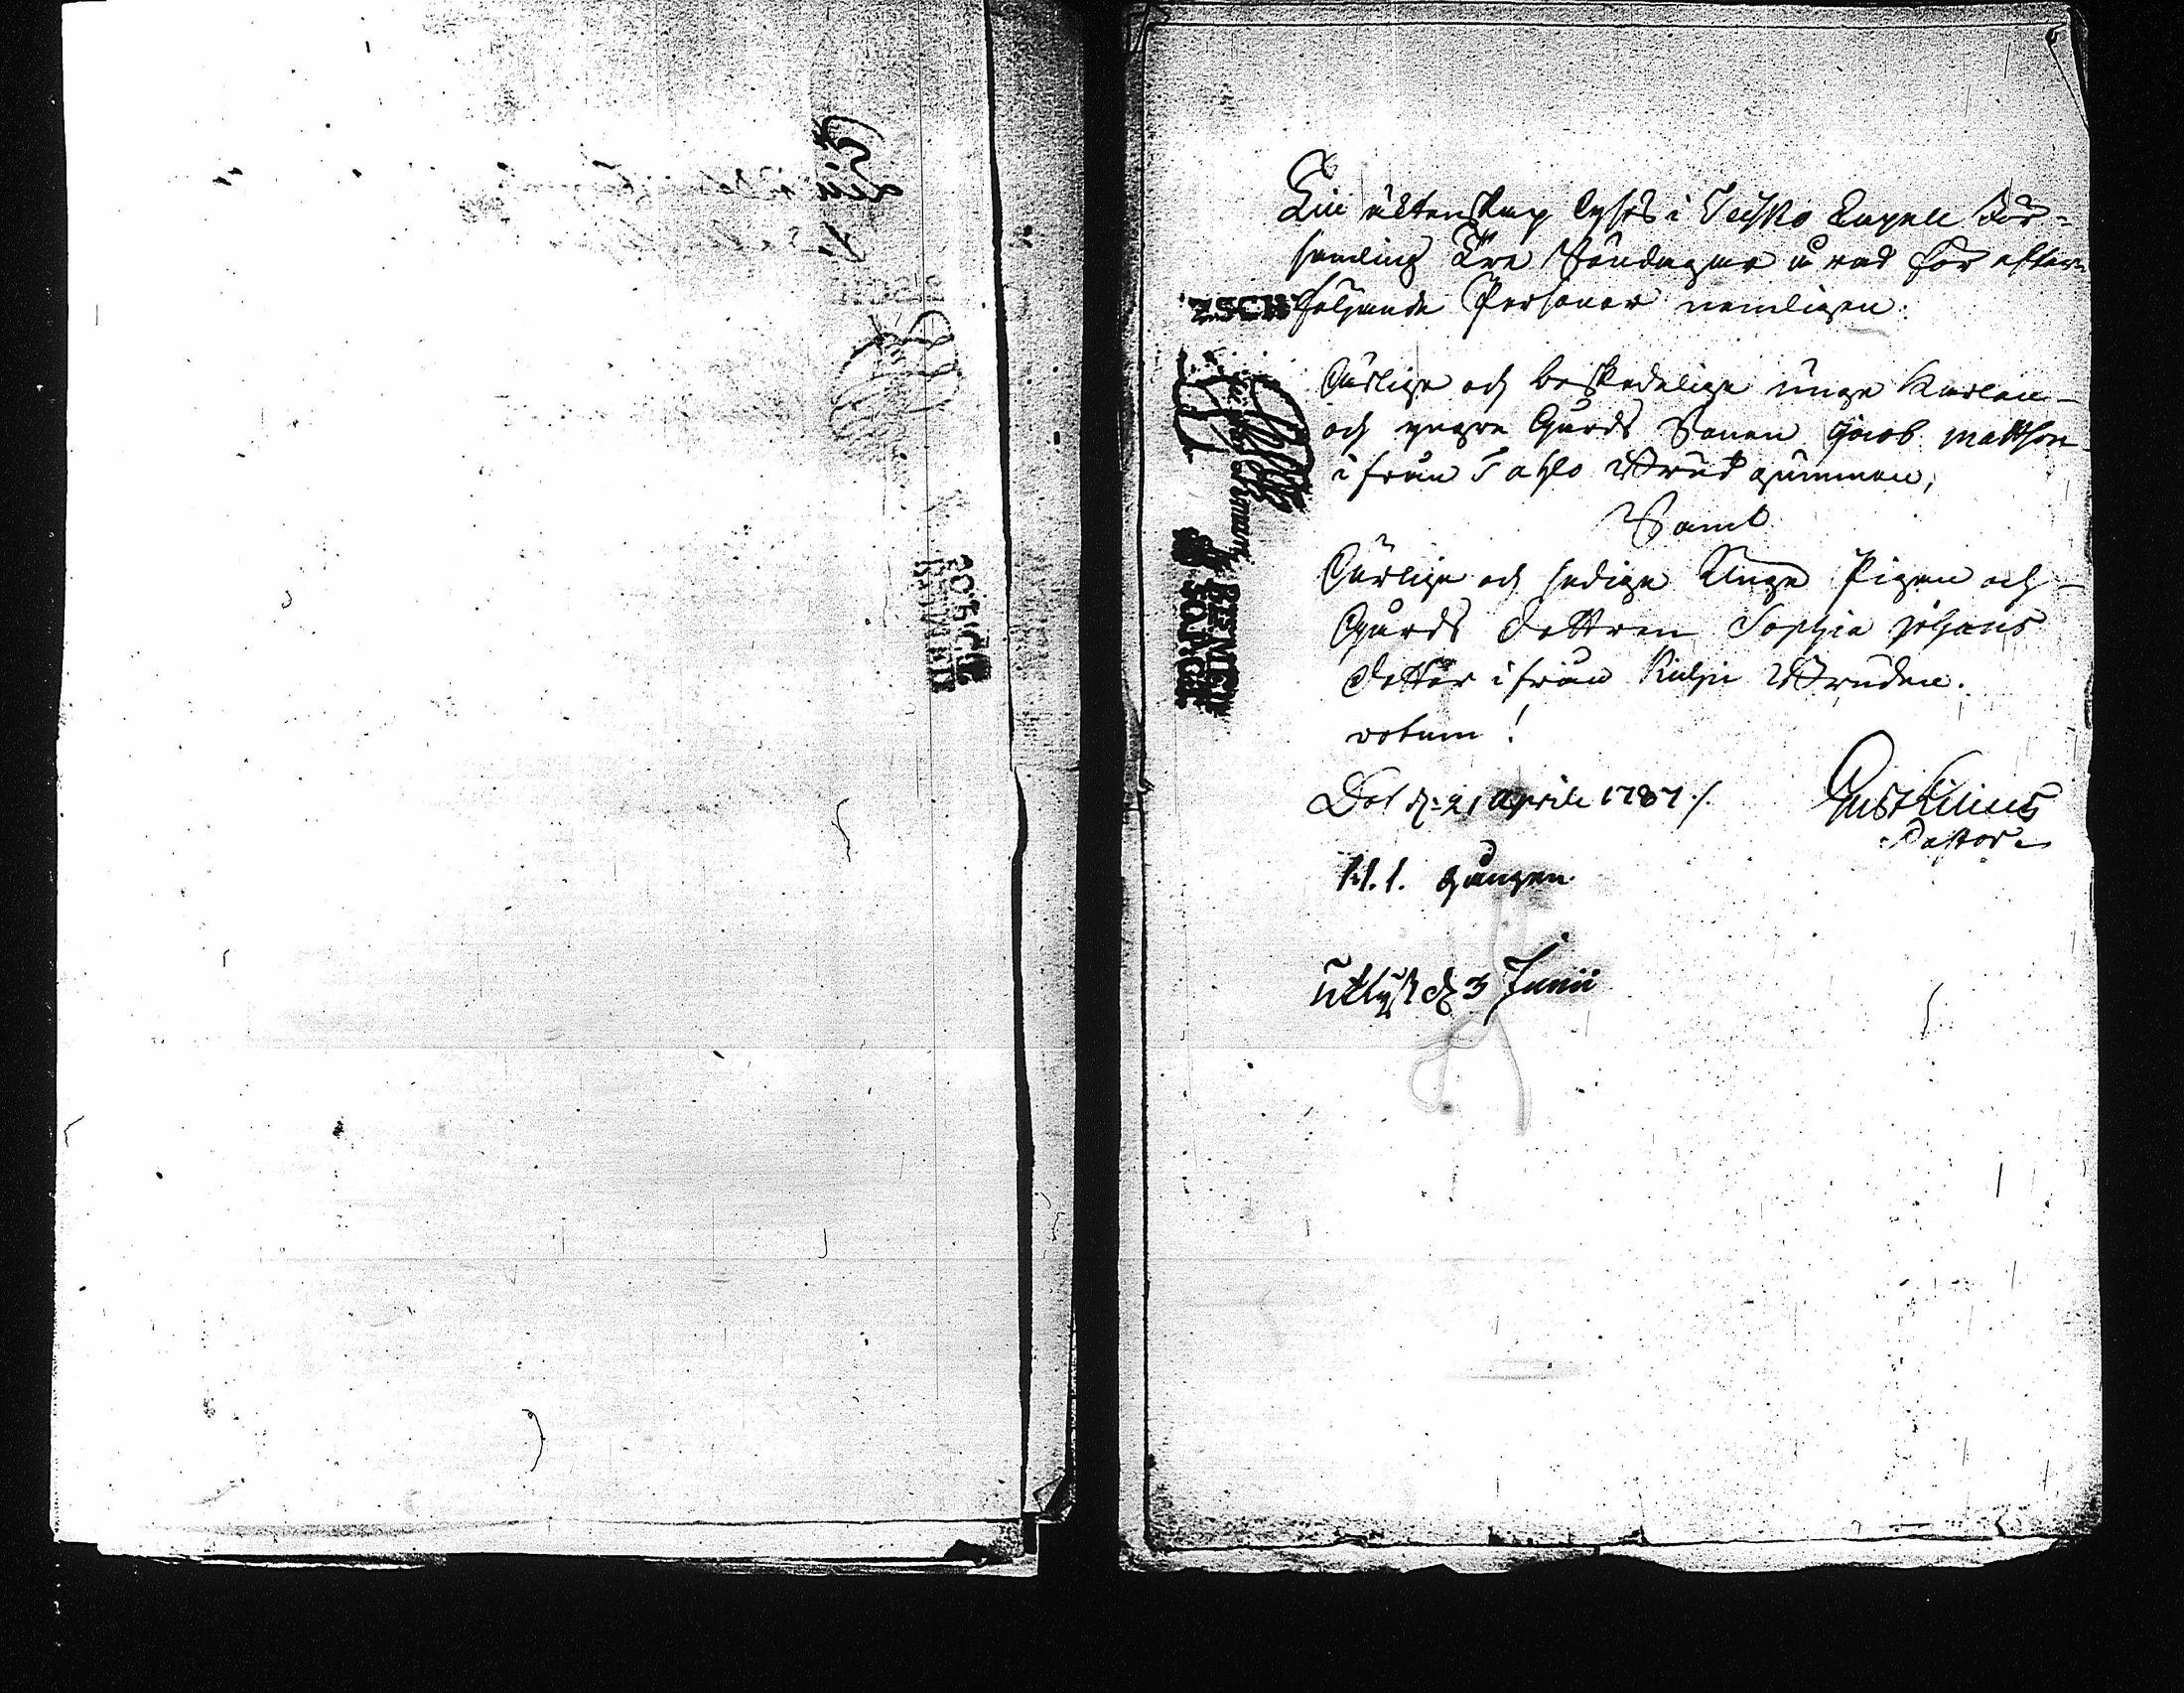 Til ächtenskap lyses i Teisko Capell För-
samling Tre Söndagar å rad för efter-
följande Personer nemligen:
Ährlige och beskedelige unge Karlen
och yngre Gårds Sonen Jacob Mattson
ifrån Brudgummen,
Samt
Ährliga och sediga Unga Pigan och
Gårds dottren Sophia Johans
dotter ifrån Kulju Bruden.
votum!
Dat d: 21 Aprile 1787./.
Gust
Pastor
1. gången
Utlyst d 3 Junii